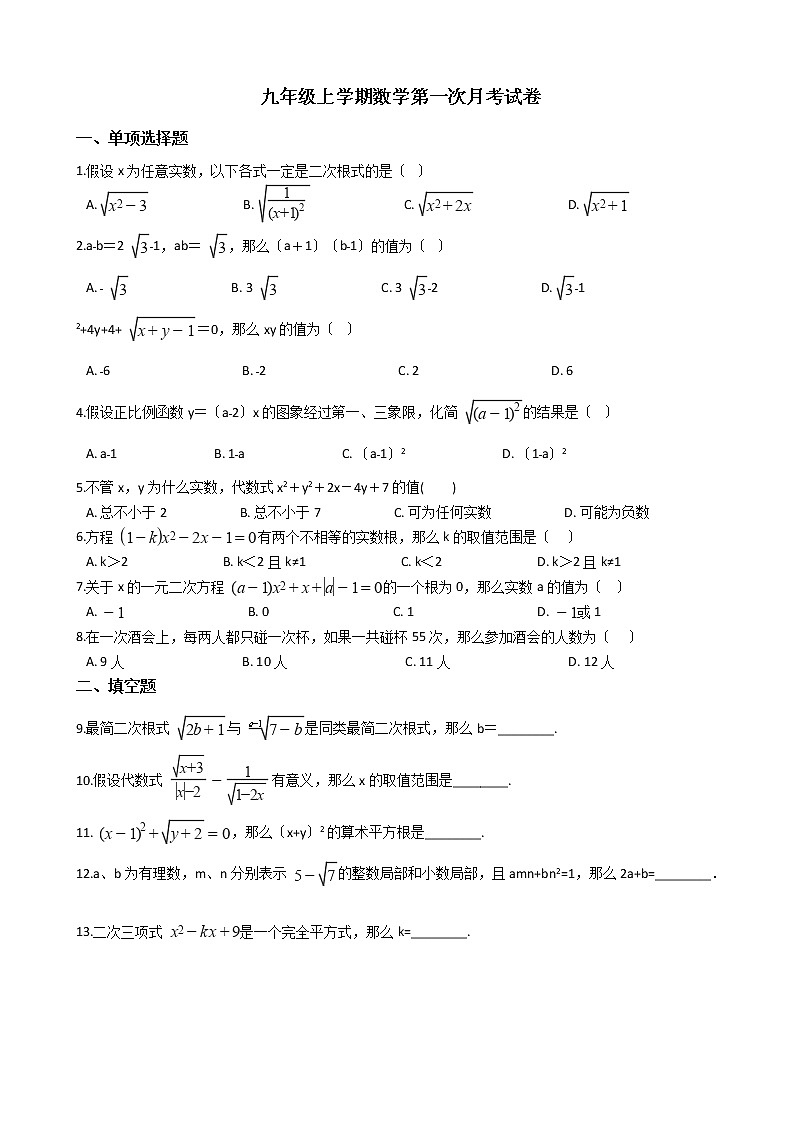 九年级上学期数学第一次月考试卷
一、单项选择题
1.假设 x 为任意实数，以下各式一定是二次根式的是〔 〕
A. √(x²−3) B. √(1/(x+1)²) C. √(x²+2x) D. √(x²+1)
2.a-b＝2 √3-1，ab＝ √3，那么〔a＋1〕〔b-1〕的值为〔 〕
A. - √3 B. 3 √3 C. 3 √3-2 D. √3-1
²+4y+4+ √(x+y−1)＝0，那么 xy 的值为〔 〕
A. -6 B. -2 C. 2 D. 6
4.假设正比例函数 y＝〔a-2〕x 的图象经过第一、三象限，化简 √((a−1)²) 的结果是〔 〕
A. a-1 B. 1-a C. 〔a-1〕² D. 〔1-a〕²
5.不管 x，y 为什么实数，代数式 x²＋y²＋2x－4y＋7 的值( )
A. 总不小于 2 B. 总不小于 7 C. 可为任何实数 D. 可能为负数
6.方程 (1−k)x²−2x−1=0 有两个不相等的实数根，那么 k 的取值范围是〔 〕
A. k＞2 B. k＜2 且 k≠1 C. k＜2 D. k＞2 且 k≠1
7.关于 x 的一元二次方程 (a−1)x²+x+|a|−1=0 的一个根为 0，那么实数 a 的值为〔 〕
A. −1 B. 0 C. 1 D. −1或 1
8.在一次酒会上，每两人都只碰一次杯，如果一共碰杯 55 次，那么参加酒会的人数为〔 〕
A. 9 人 B. 10 人 C. 11 人 D. 12 人
二、填空题
9.最简二次根式 √(2b+1) 与 √(7−b) 是同类最简二次根式，那么 b＝________.
10.假设代数式 √(x+3)/(|x|−2) − 1/√(1−2x) 有意义，那么 x 的取值范围是________.
11. (x−1)²+√(y+2)=0，那么〔x+y〕² 的算术平方根是________.
12.a、b 为有理数，m、n 分别表示 5−√7 的整数局部和小数局部，且 amn+bn²=1，那么 2a+b=________．
13.二次三项式 x²−kx+9是一个完全平方式，那么 k=________.